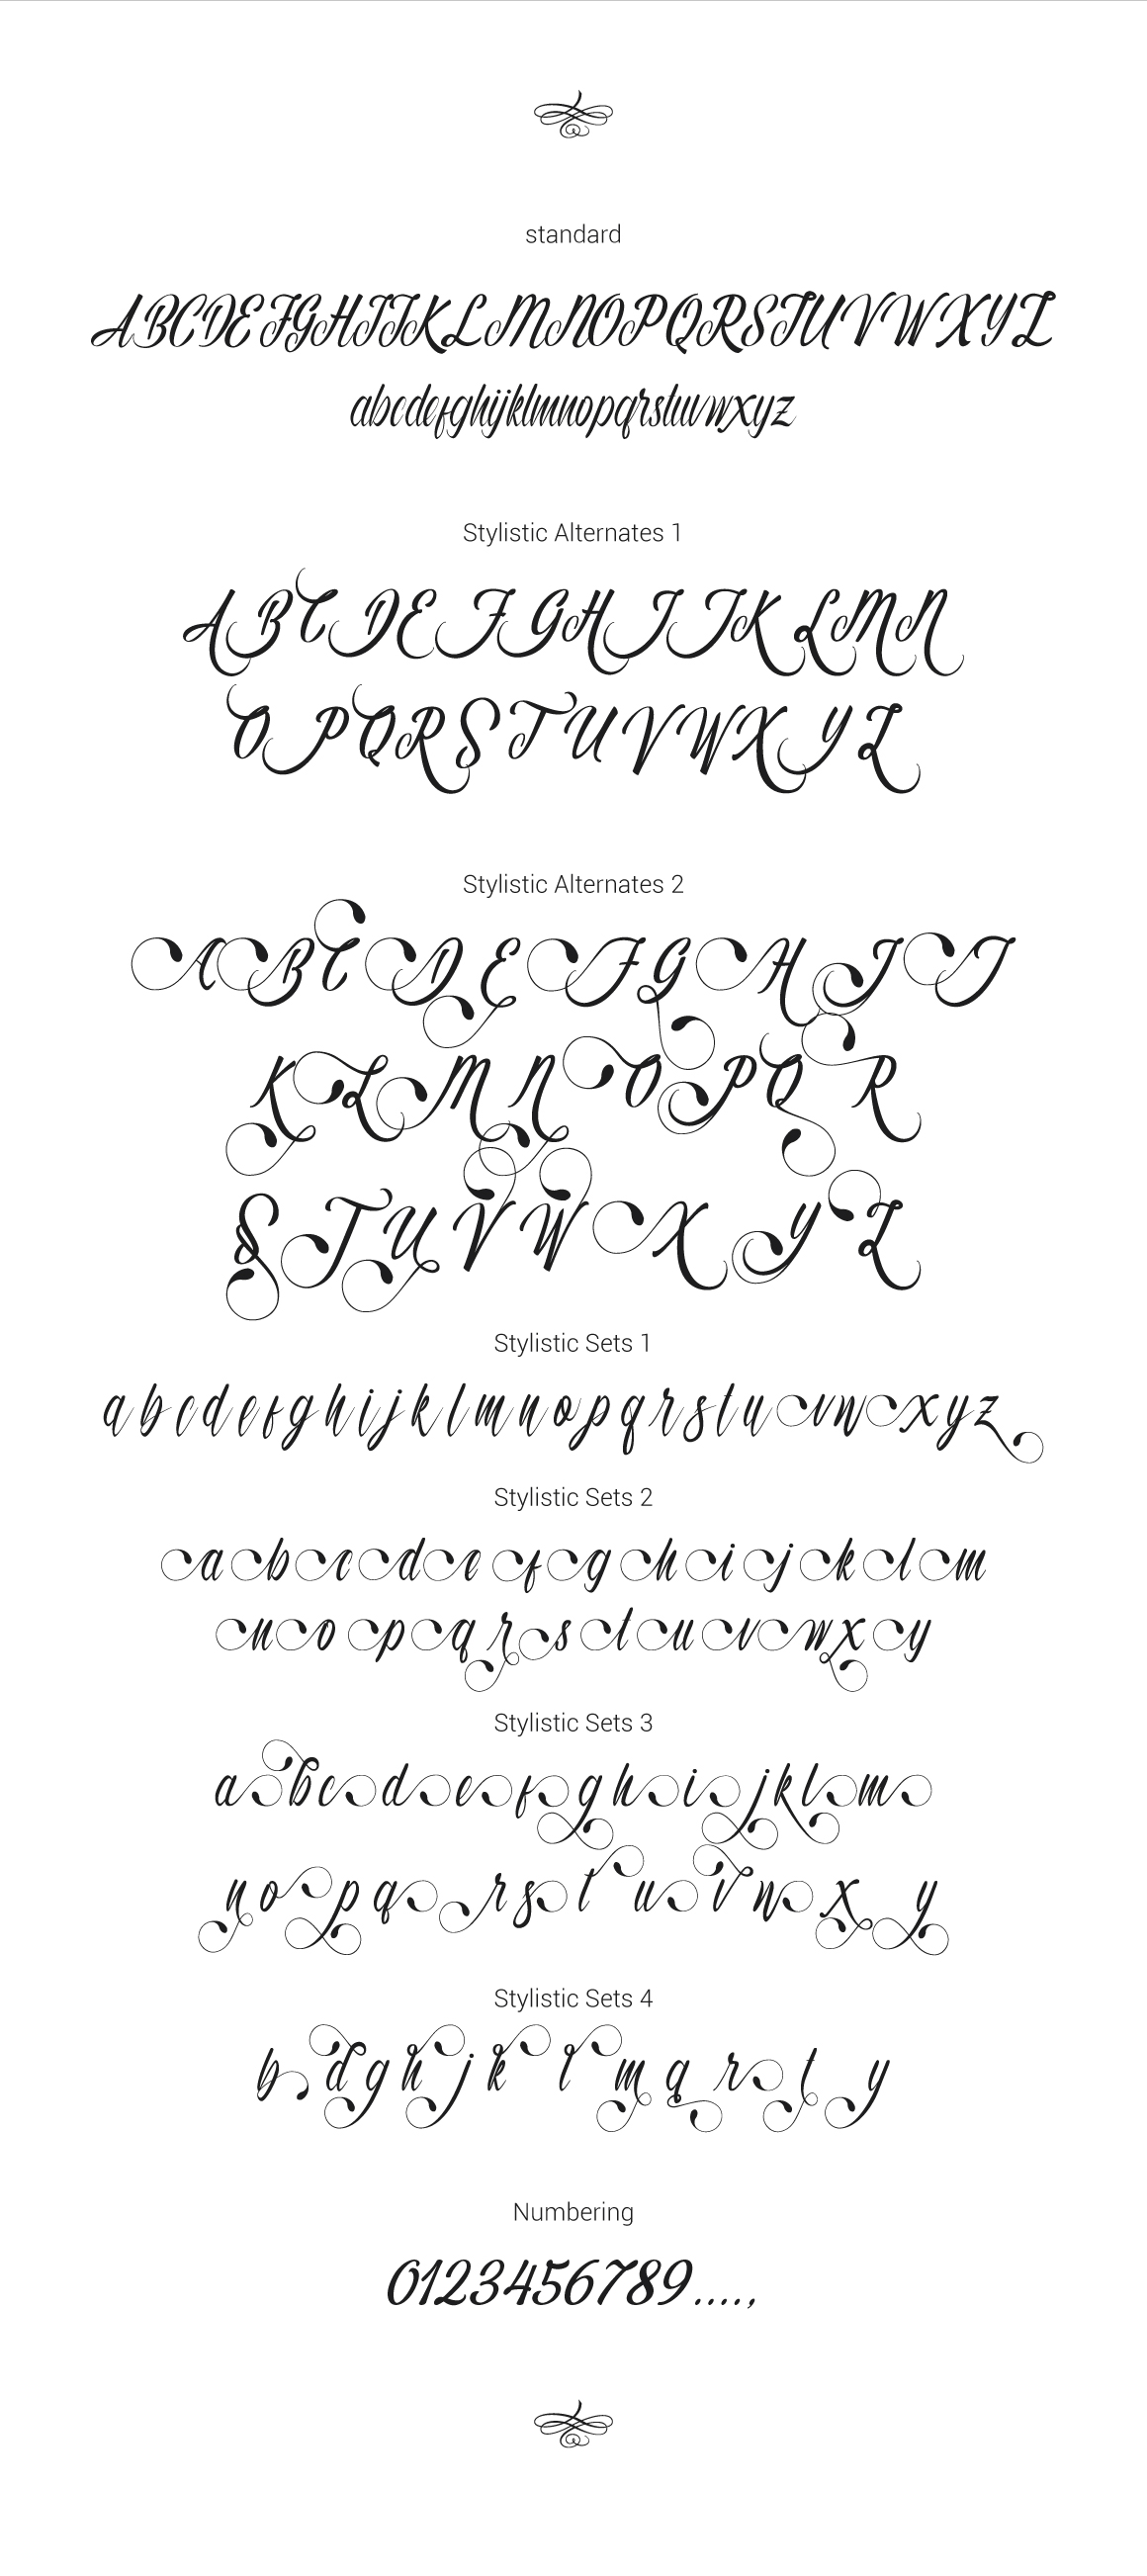 standard
ABCDEFGHIJKLMNOPQRSTUVWXYZ
abcdefghijklmnopqrstuvwxyz
Stylistic Alternates 1
ABCDEFGHIJKLMN
OPQRSTUVWXYZ
Stylistic Alternates 2
ABCDEFGHIJ
KLMNOPQR
STUVWXYZ
Stylistic Sets 1
abcdefghijklmnopqrstuvwxyz
Stylistic Sets 2
abcdefghijklm
nopqrstuvwxy
Stylistic Sets 3
abcdefghijklm
nopqrstuvwxy
Stylistic Sets 4
bdghjklmqrty
Numbering
0123456789....,